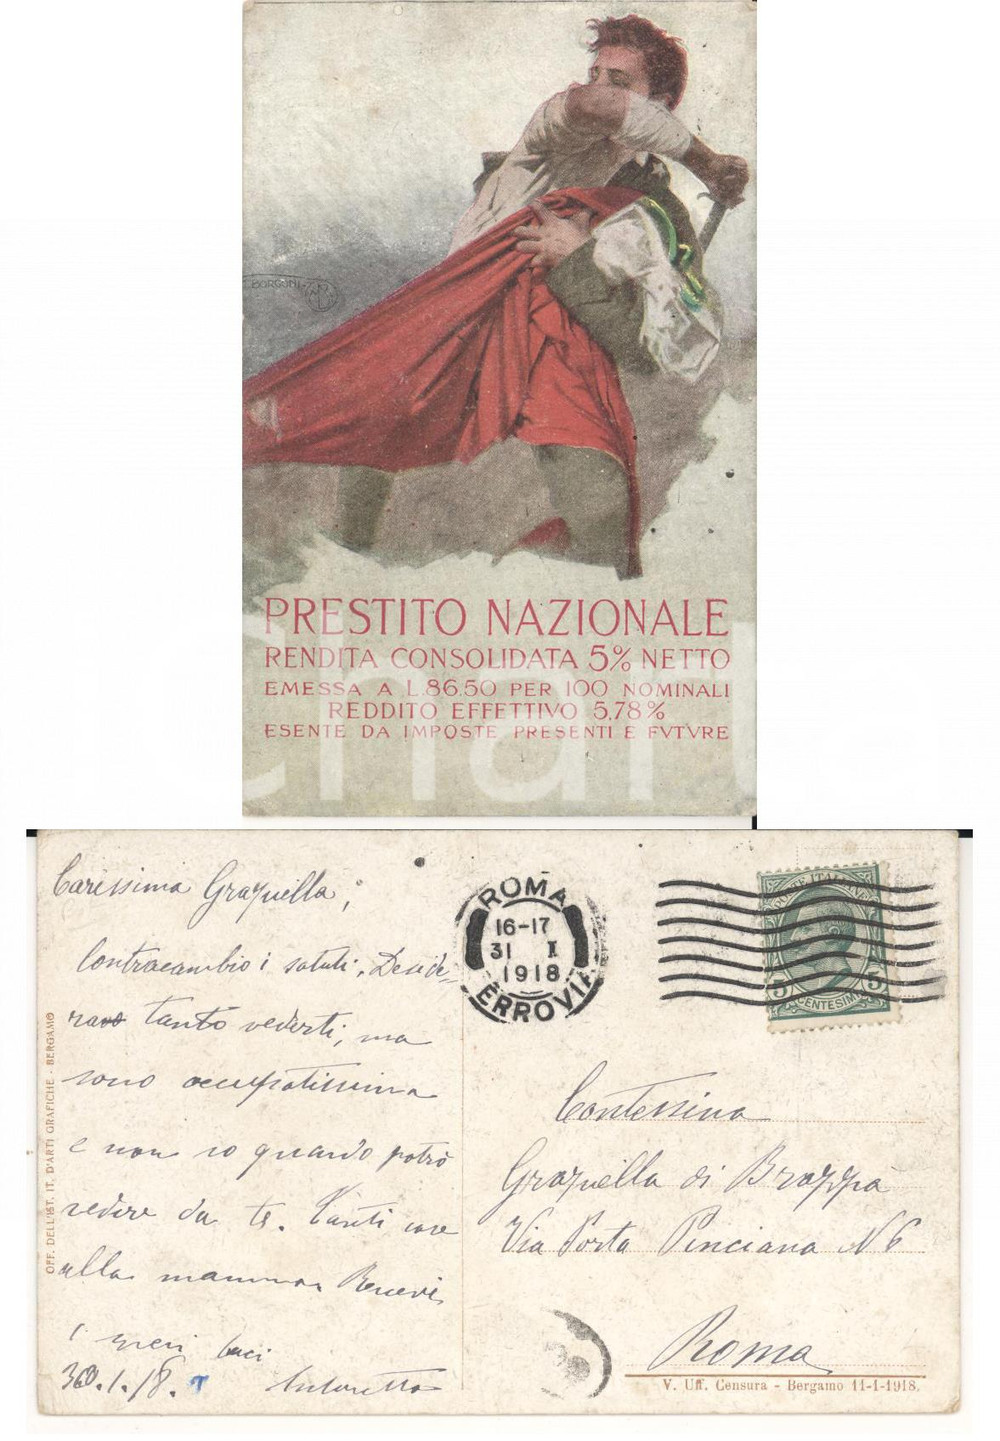 BORGONI
PRESTITO NAZIONALE
RENDITA CONSOLIDATA 5% NETTO
EMESSA A L.86.50 PER 100 NOMINALI
REDDITO EFFETTIVO 5,78%
ESENTE DA IMPOSTE PRESENTI E FVTVRE
Carissima Graziella,
Contraccambio i saluti. Deside=
ravo tanto vederti, ma
sono occupatissima
e non so quando potrò
venire da te. Tanti
alla mamma. Ricevi
i miei baci
30.1.18. Antonietta
OFF. DELL'IST. IT. D'ARTI GRAFICHE - BERGAMO
ROMA
16-17
31 I
1918
FERROVIA
POSTE ITALIANE
5 5
CENTESIMI
Contessina
Graziella di Brazzà
Via Porta Pinciana N 6
Roma
V. Uff. Censura - Bergamo 11-1-1918.